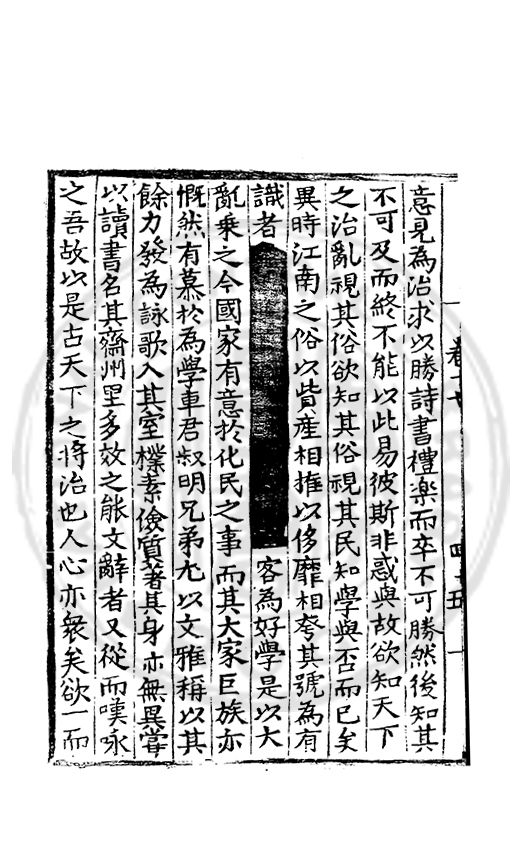 意見為治求以勝詩書禮樂而卒不可勝然後知其
不可及而終不能以此易彼斯非惑與故欲知天下
之治亂視其俗欲知其俗視其民知學與否而已矣
異時江南之俗以貲産相擁以侈靡相夸其號為有
識者 客為好學是以大
亂乗之今國家有意扵化民之事而其大家巨族亦
慨然有慕扵為學車君叔明兄弟尤以文雅稱以其
餘力發為詠歌入其室樸素儉質著其身亦無異甞
以讀書名其齋州里多效之能文辭者又從而嘆咏
之吾故以是古天下之将治也人心亦衆矣欲一而
卷十七 四十五